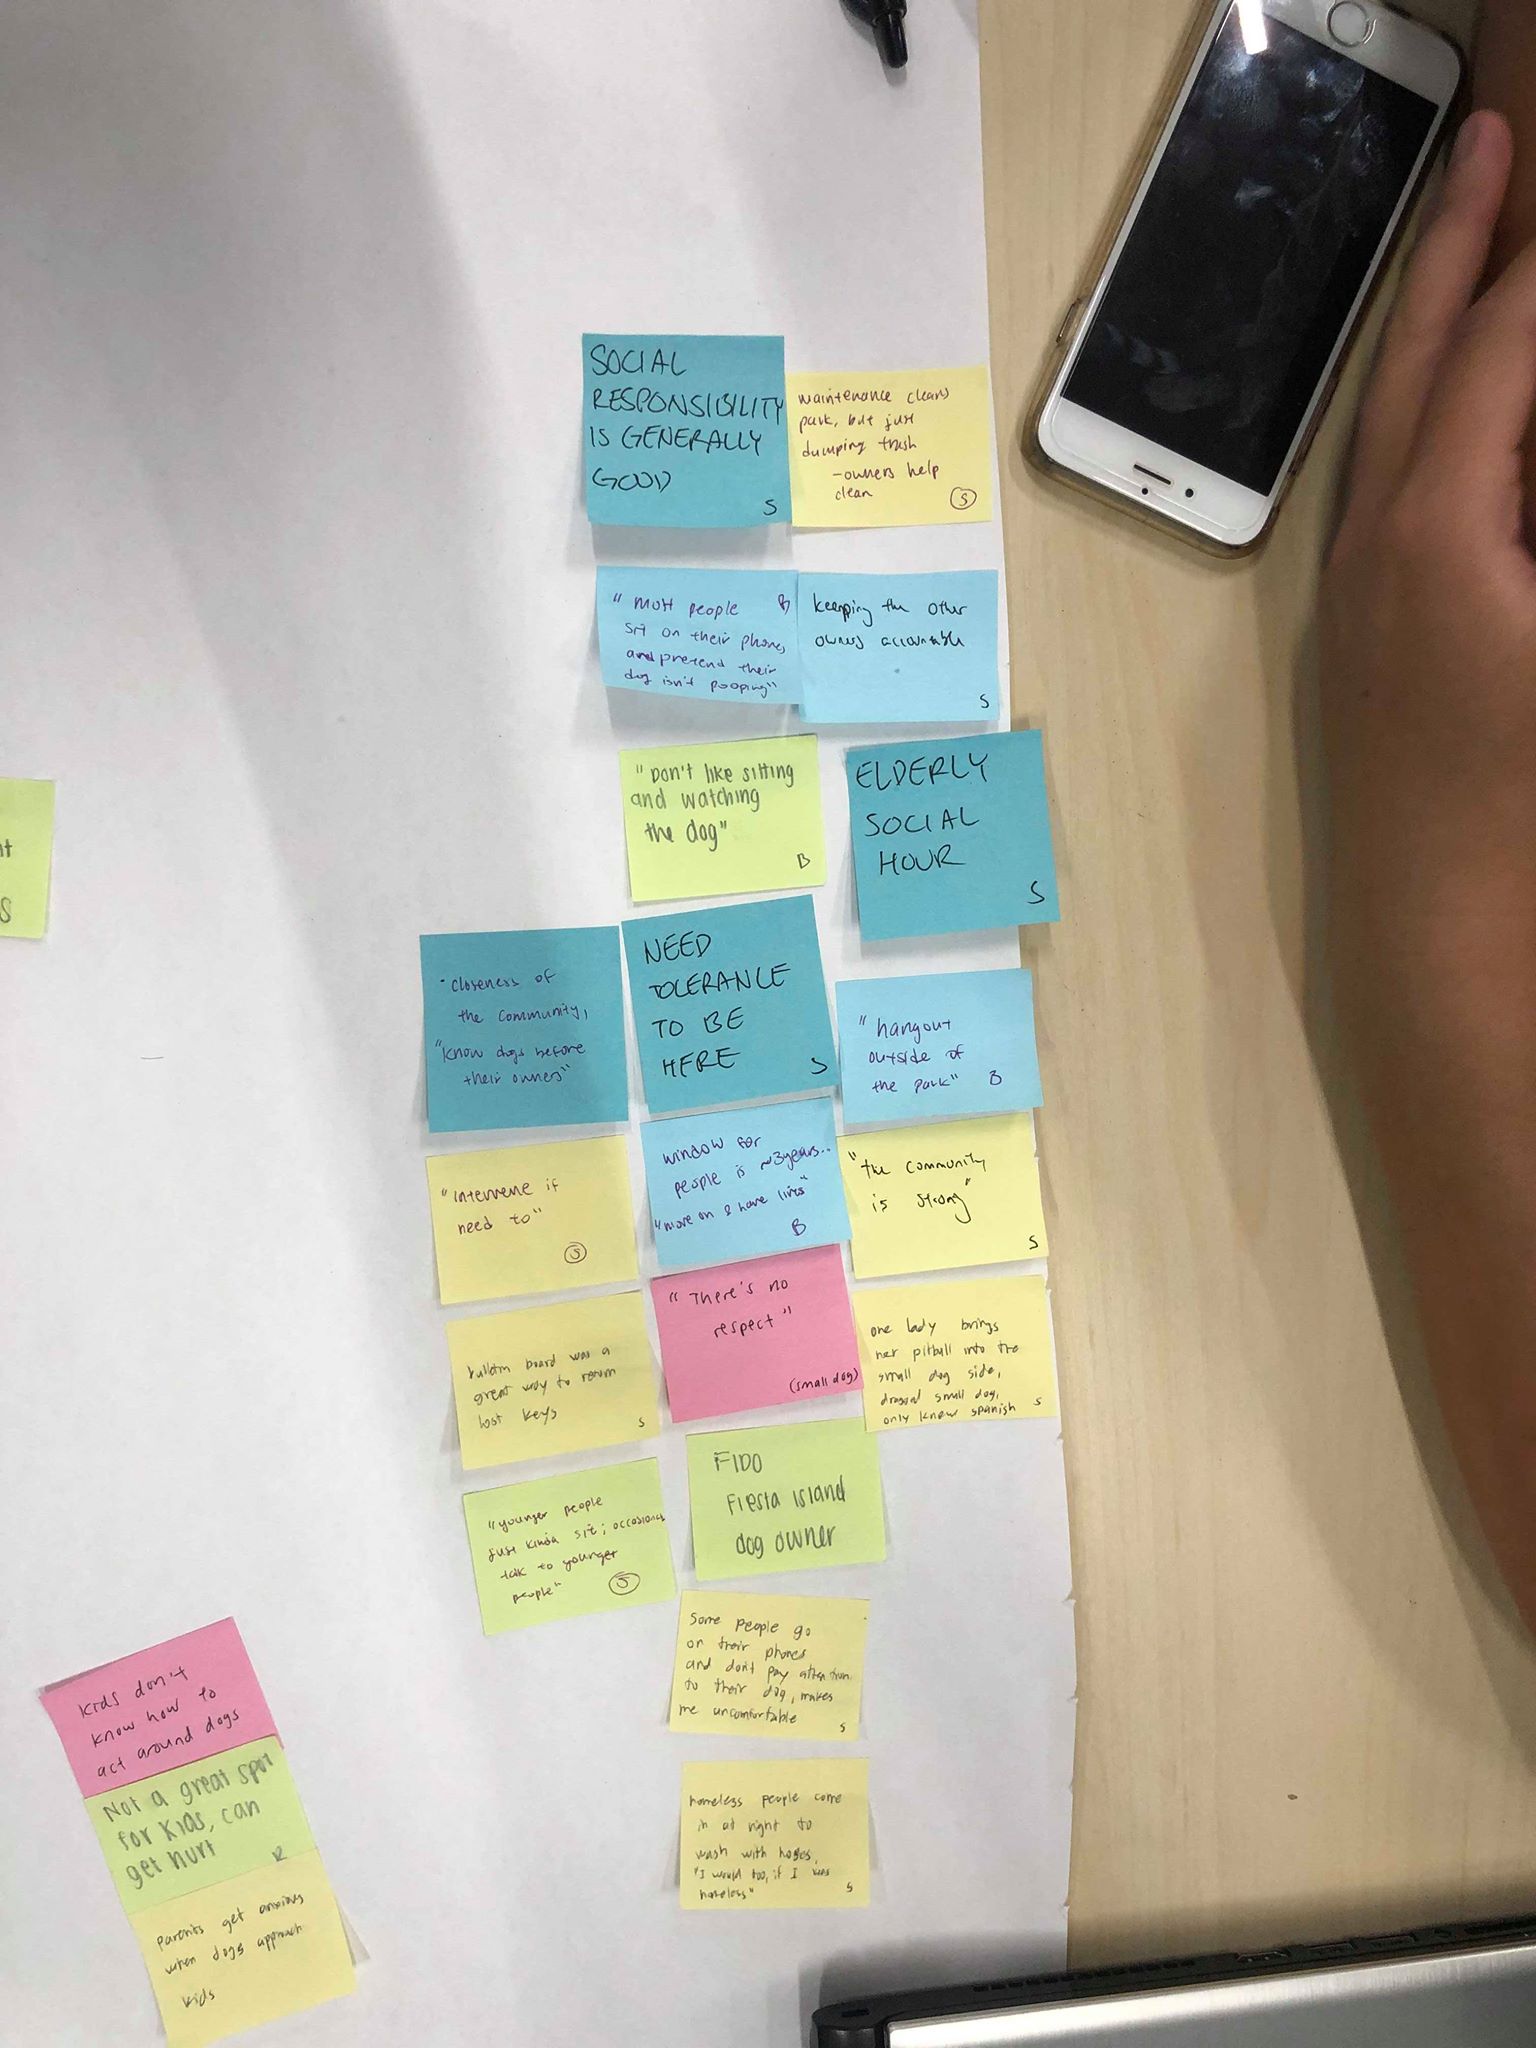 SOCIAL
RESPONSIBILITY
IS GENERALLY
GOOD
S
maintenance cleans
park, but just
dumping trash
-owners help
clean
S
"most people B
sit on their phones
and pretend their
dog isn't pooping"
keeping the other
owners accountable
S
"Don't like sitting
and watching
the dog"
B
ELDERLY
SOCIAL
HOUR
S
closeness of
the community,
"know dogs before
their owners"
NEED
TOLERANCE
TO BE
HERE
S
"hangout
outside of
the park" B
"intervene if
need to"
S
window for
people is ~3years..
"move on & have lives"
B
"the community
is strong"
S
bulletin board was a
great way to return
lost keys
S
"There's no
respect"
(small dog)
one lady brings
her pitbull into the
small dog side,
small dog,
only knew spanish S
"younger people
just kinda sit; occasionally
talk to younger
people"
S
FIDO
Fiesta island
dog owner
Some people go
on their phones
and don't pay attention
to their dog, makes
me uncomfortable
S
homeless people come
in at night to
wash with hoses,
"I would too, if I was
homeless" S
kids don't
know how to
act around dogs
Not a great spot
for kids, can
get hurt
parents get anxious
when dogs approach
kids
S